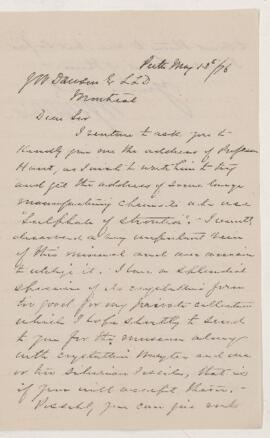 Perth May 12th/76
J W Dawson Esq L.L.D
Montreal
Dear Sir
I venture to ask you to
kindly give me the address of Professor
Hunt, as I wish to write him to try
and get the address of some large
manufacturing chemists who use
"Sulphate of Strontia". I recently
discovered a very important vein
of this mineral and am anxious
to utilize it. I have a splendid
specimen of its crystalline form
too good for my private collection
which I hope shortly to send
to you for the museum along
with crystalline and one
or two Silurian fossils, that is
if you will accept them. -
Possibly you can give me